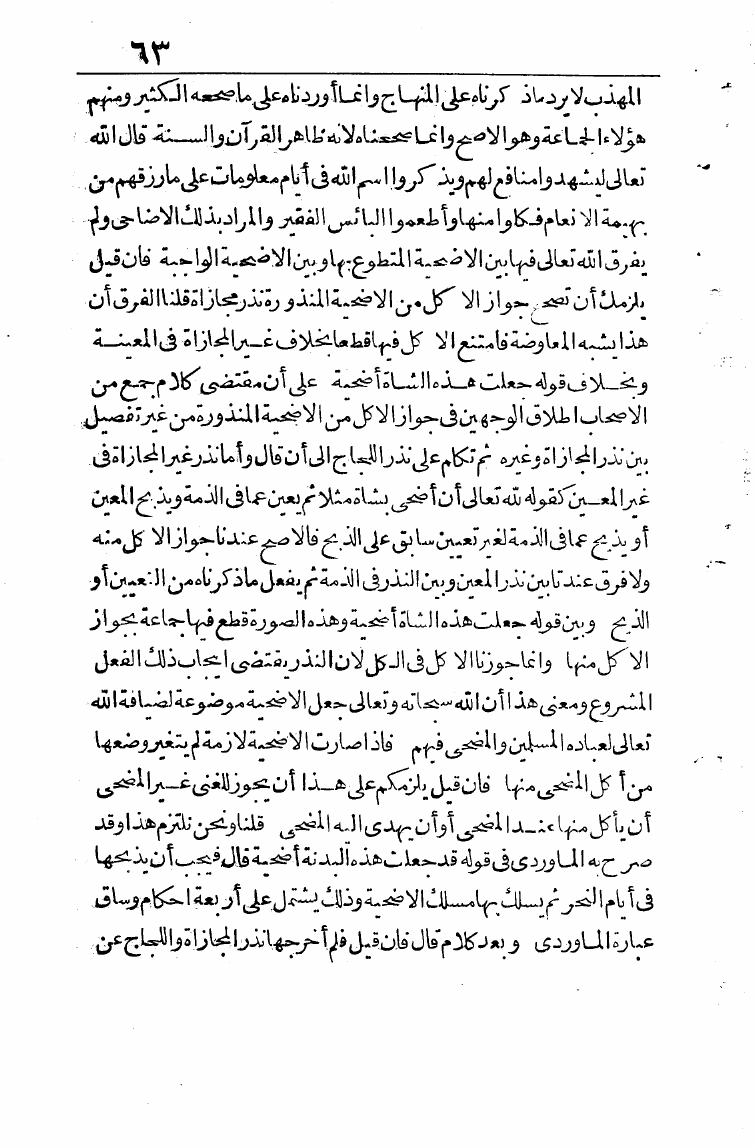 ٦٣
المهذب لا يرد ما ذكرناه على المنهاج وانما أوردناه على ما صححه الكثير ومنهم
هؤلاء الجماعة وهو الاصح وانما صححناه لانه ظاهر القرآن والسنة قال الله
تعالى ليشهدوا منافع لهم ويذكروا اسم الله فى أيام معلومات على ما رزقهم من
بهيمة الانعام فكلوا منها وأطعموا البائس الفقير والمراد بذلك الاضاحى ولم
يفرق الله تعالى فيها بين الاضحية المتطوع بها وبين الاضحية الواجبة فان قيل
يلزمك أن تصحح جواز الاكل من الاضحية المنذورة نذر مجازاة قلنا الفرق أن
هذا يشبه المعاوضة فامتنع الاكل فيها قطعا بخلاف غير المجازاة فى المعينة
وبخلاف قوله جعلت هذه الشاة أضحية على أن مقتضى كلام جمع من
الاصحاب اطلاق الوجهين فى جواز الاكل من الاضحية المنذورة من غير تفصيل
بين نذر المجازاة وغيره ثم تكلم على نذر اللجاج الى أن قال وأما نذر غير المجازاة فى
غير المعين كقوله لله تعالى أن أضحى بشاة مثلا ثم يعين عما فى الذمة ويذبح المعين
أو يذبح عما فى الذمة لغير تعيين سابق على الذبح فالاصح عندنا جواز الاكل منه
ولا فرق عندنا بين نذر المعين وبين النذر فى الذمة ثم يفعل ما ذكرناه من التعيين أو
الذبح وبين قوله جعلت هذه الشاة أضحية وهذه الصورة قطع فيها جماعة بجواز
الاكل منها وانما جوزنا الاكل فى الكل لان النذر يقتضى ايجاب ذلك الفعل
المشروع ومعنى هذا أن الله سبحانه وتعالى جعل الاضحية موضوعة لضيافة الله
تعالى لعباده المسلمين والمضحى فيهم فاذا صارت الاضحية لازمة لم يتغير وضعها
من أكل المضحى منها فان قيل يلزمكم على هذا أن يجوز للغنى غير المضحى
أن يأكل منها عند المضحى أو أن يهدى اليه المضحى قلنا ونحن نلتزم هذا وقد
صرح به الماوردى فى قوله قد جعلت هذه البدنة أضحية قال فيجب أن يذبحها
فى أيام النحر ثم يسلك بها مسلك الاضحية وذلك يشتمل على أربعة احكام وساق
عبارة الماوردى وبعد كلام قال فان قيل فلم أخرجها نذر المجازاة واللجاج عن